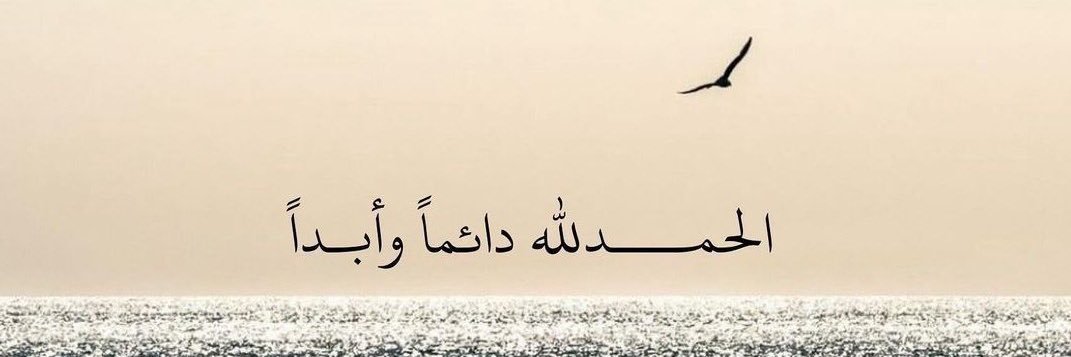 الحمـــــدلله دائماً وأبـداً